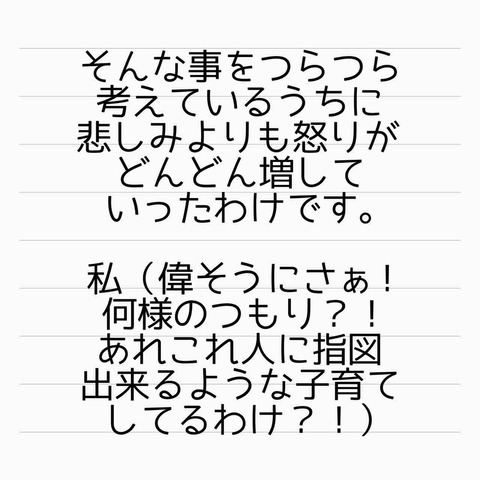 そんな事をつらつら
考えているうちに
悲しみよりも怒りが
どんどん増して
いったわけです。
私（偉そうにさぁ！
何様のつもり？！
あれこれ人に指図
出来るような子育て
してるわけ？！）